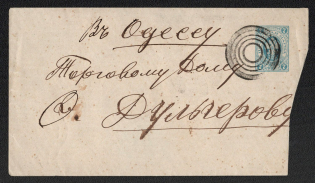 Въ Одессу
Торговому Дому
Ѳ. Дульгерову